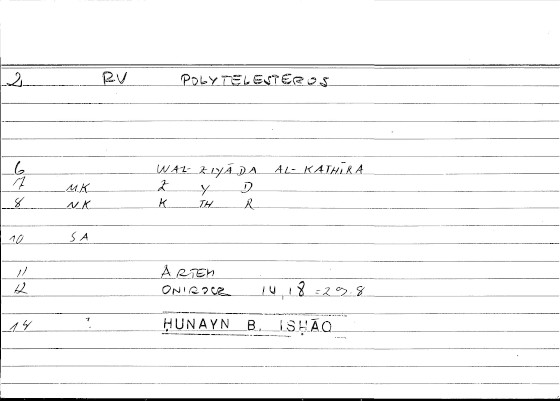 2 RV POLYTELESTEROS
6 WAL-ZIYĀDA AL-KATHĪRA
7 MK Z Y D
8 NK K TH R
10 SA
11 ARTEM
12 ONIROCR 14,18 = 29.8
14 ? ḤUNAYN B. ISḤĀQ